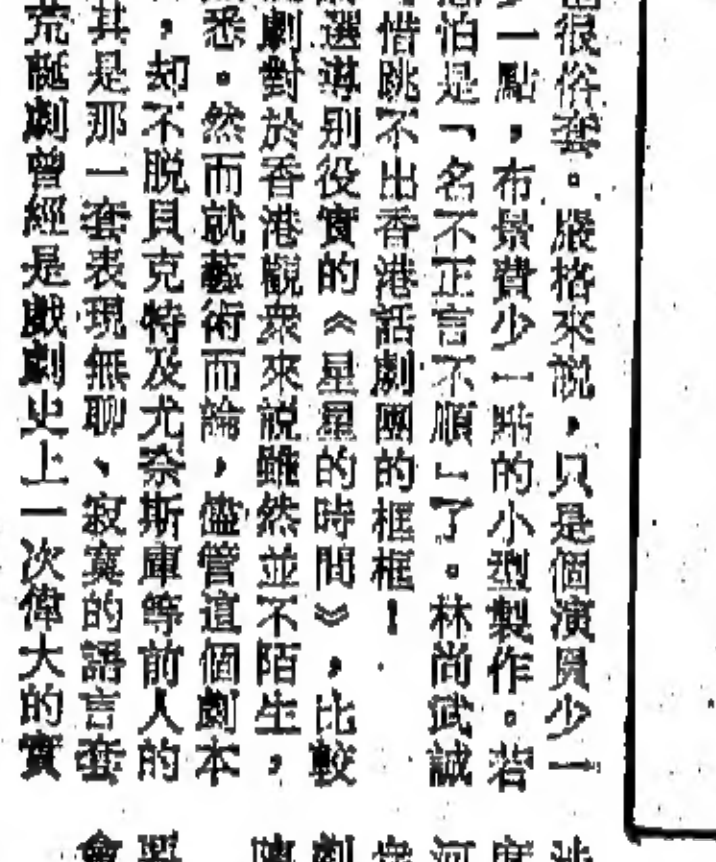 很俗套。嚴格來說，只是個演員少一
一點，布景費少一點的小型製作。若
怕是「名不正言不順」了。林尚武誠
惜跳不出香港話劇團的框框！
選導別役實的《星星的時間》，比較
劇對於香港觀衆來說雖然並不陌生，
悉。然而就藝術而論，儘管這個劇本
，却不脫貝克特及尤奈斯庫等前人的
其是那一套表現無聊、寂寞的語言套
荒誕劇曾經是戲劇史上一次偉大的實